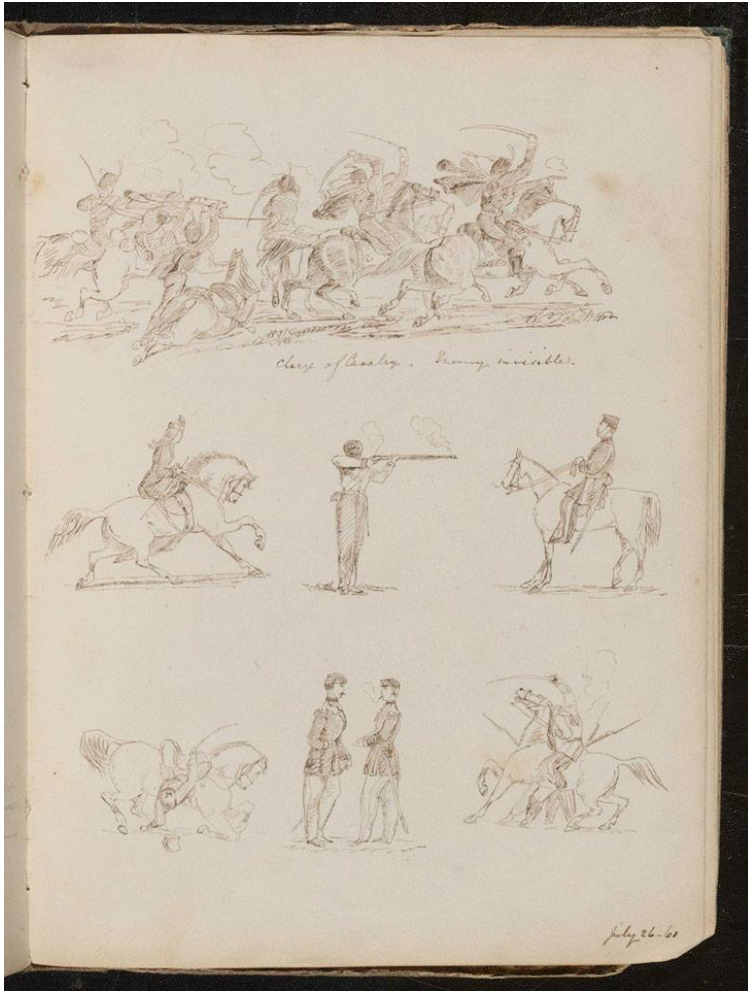 Charge of Cavalry. Enemy invisible.
July 26-61